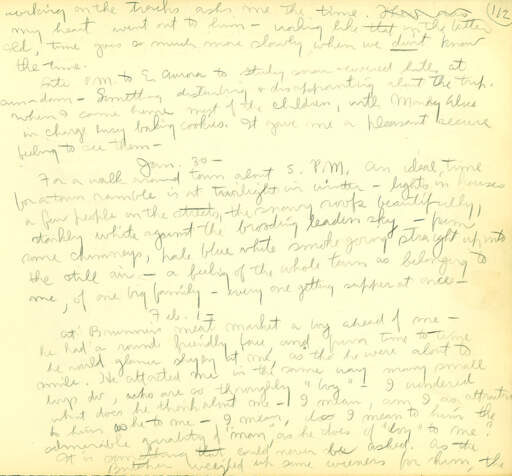 working on the tracks asks me the time.
my heart went out to him - waiting like that in the bitter
cold, time goes so much more slowly when we don't know
the time.
Late P.M. to E. Aurora to study snow-covered hills at
sundown - Something disturbing & disappointing about the trip.
When I came home most of the children, with Mary Alice
in charge busy baking cookies. It gave me a pleasant secure
feeling to see them -
Jan. 30 -
For a walk around town about 5. P.M. An ideal time
for a town ramble is at twilight in winter - lights in houses
a few people on the streets, the snowy roofs beautifully,
starkly white against the brooding leaden sky - from
some chimneys, pale blue white smoke going straight up into
the still air - a feeling of the whole town as belonging to
me, of one big family - every one getting supper at once -
Feb. 1 -
At Brunner's meat market a boy ahead of me -
he had a round friendly face and from time to time
he would glance slyly at me, as tho he were about to
smile. He attracted me in the same way many small
boys do, who are so thoroughly "boy" - I wondered
what does he think about me - I mean, am I as attractive
to him as he to me - I mean, do I mean to him the
admirable quality of "man", as he does of "boy" to me?
It is something that could never be asked. As the
butcher weighed up some wieners for him, the
112